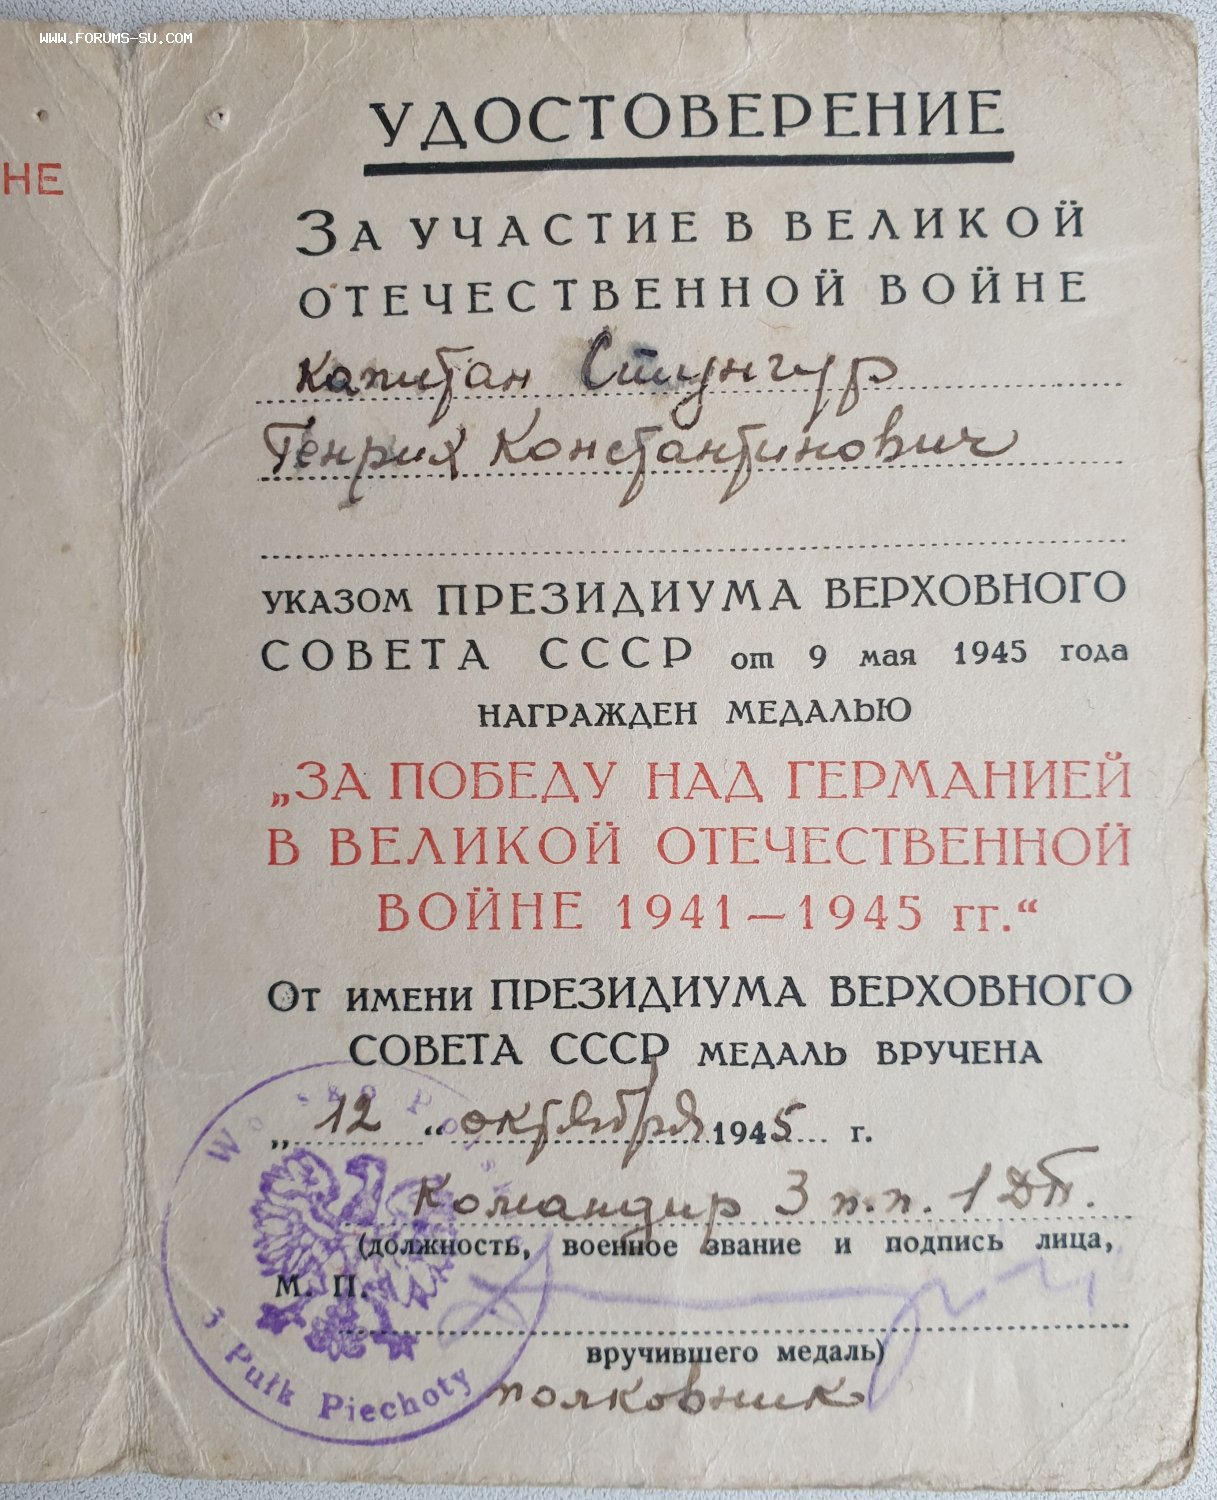 www.forums-su.com
НЕ
УДОСТОВЕРЕНИЕ
ЗА УЧАСТИЕ В ВЕЛИКОЙ
ОТЕЧЕСТВЕННОЙ ВОЙНЕ
капитан Стунгур
Генрих Константинович
УКАЗОМ ПРЕЗИДИУМА ВЕРХОВНОГО
СОВЕТА СССР от 9 мая 1945 года
НАГРАЖДЕН МЕДАЛЬЮ
„ЗА ПОБЕДУ НАД ГЕРМАНИЕЙ
В ВЕЛИКОЙ ОТЕЧЕСТВЕННОЙ
ВОЙНЕ 1941—1945 гг.“
ОТ ИМЕНИ ПРЕЗИДИУМА ВЕРХОВНОГО
СОВЕТА СССР МЕДАЛЬ ВРУЧЕНА
„12“ октября 1945 г.
Командир 3 п.п. 1 ДП.
(должность, военное звание и подпись лица,
М. П.
вручившего медаль)
полковник
3 Pułk Piechoty